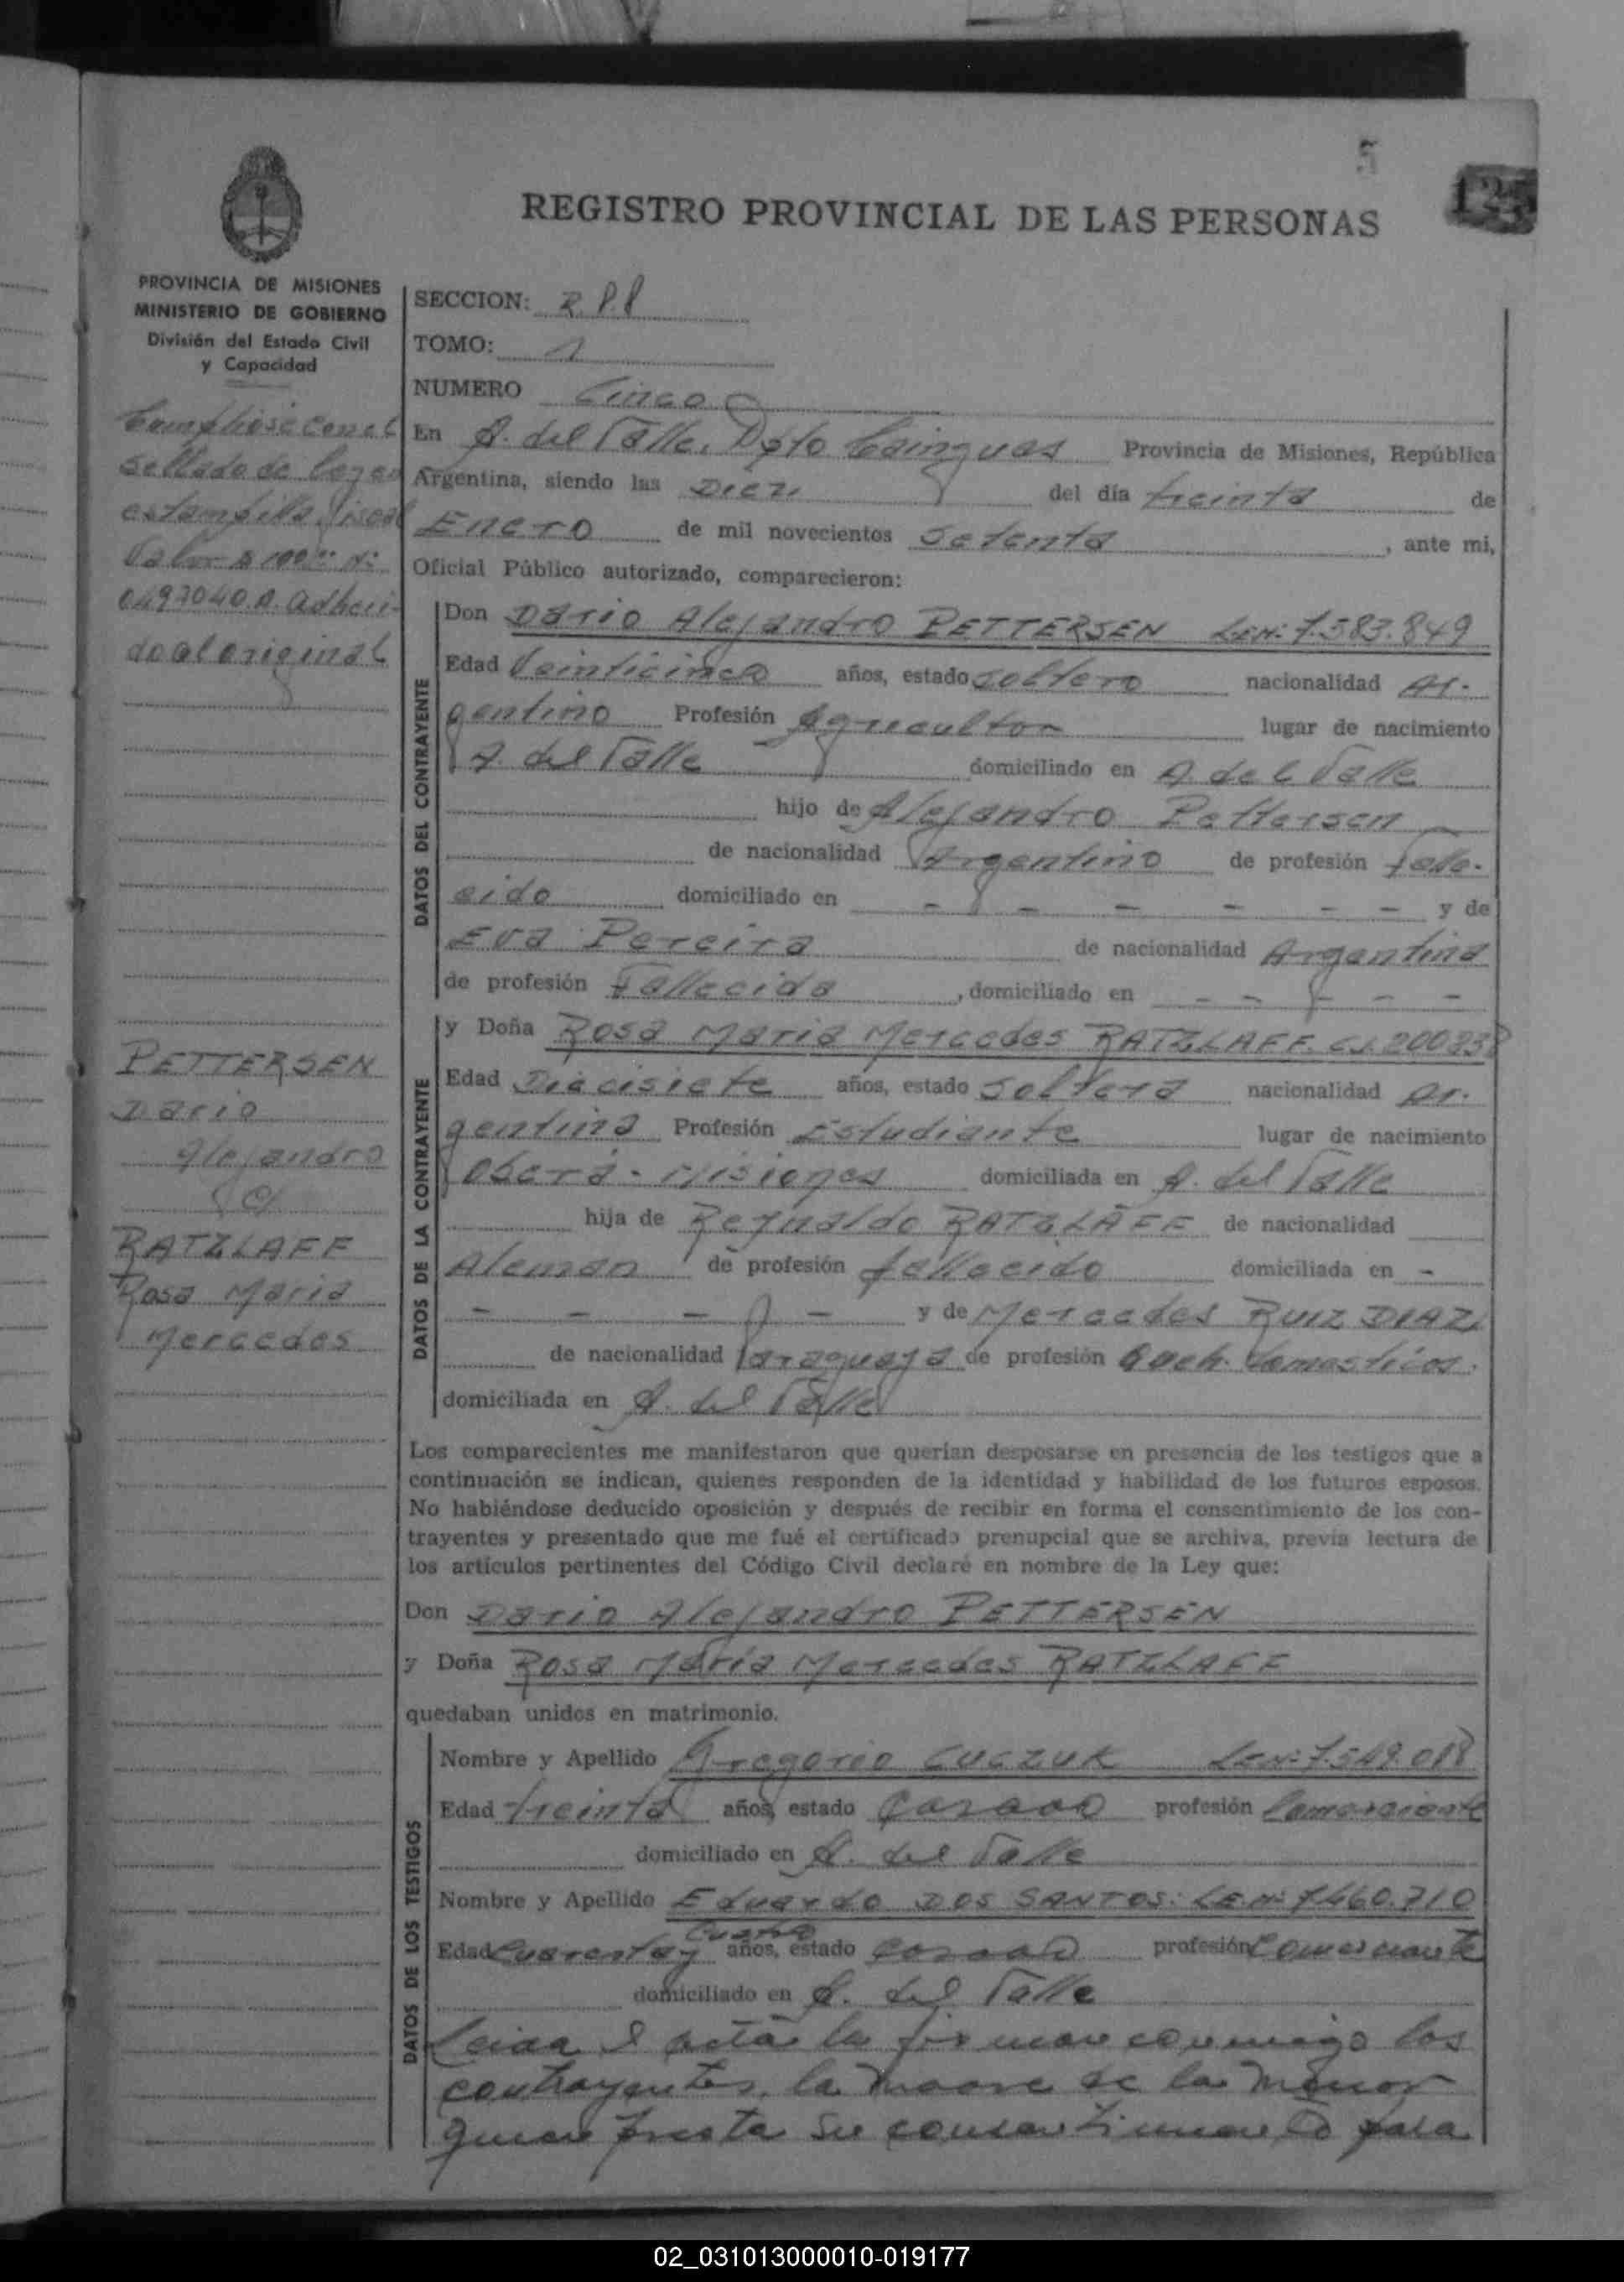 5
125
REGISTRO PROVINCIAL DE LAS PERSONAS
PROVINCIA DE MISIONES
MINISTERIO DE GOBIERNO
División del Estado Civil
y Capacidad
Cumpliose con el
sellado de Leyes
estampilla fiscal
Valor $ 100.ºº Nº
0497040.A. adheri-
do al original
PETTERSEN
Dario
Alejandro
c/
RATZLAFF
Rosa Maria
Mercedes
SECCION: R.P.P
TOMO: 1
NUMERO Cinco
En A. del Valle. Dpto Cainguas Provincia de Misiones, República
Argentina, siendo las Diez del día treinta de
Enero de mil novecientos Setenta, ante mi,
Oficial Público autorizado, comparecieron:
DATOS DEL CONTRAYENTE
Don Dario Alejandro PETTERSEN L.E.Nº 7.583.849
Edad Veinticinco años, estado soltero nacionalidad Ar-
gentino Profesión Agricultor lugar de nacimiento
A. del Valle domiciliado en A. del Valle
hijo de Alejandro Pettersen
de nacionalidad Argentino de profesión falle-
cido domiciliado en - - - - - - y de
Eva Pereira de nacionalidad Argentina
de profesión Fallecida, domiciliado en - - - - -
DATOS DE LA CONTRAYENTE
y Doña Rosa Maria Mercedes RATZLAFF. C.I. 200838
Edad Diecisiete años, estado Soltera nacionalidad Ar-
gentina Profesión Estudiante lugar de nacimiento
Oberá - Misiones domiciliada en A. del Valle
hija de Reynaldo RATZLAFF de nacionalidad
Aleman de profesión fallecido domiciliada en -
- - - - y de Mercedes RUIZ DIAZ
de nacionalidad Paraguaya de profesión Queh. domesticos.
domiciliada en A. del Valle
Los comparecientes me manifestaron que querían desposarse en presencia de los testigos que a
continuación se indican, quienes responden de la identidad y habilidad de los futuros esposos.
No habiéndose deducido oposición y después de recibir en forma el consentimiento de los con-
trayentes y presentado que me fué el certificado prenupcial que se archiva, previa lectura de
los artículos pertinentes del Código Civil declaré en nombre de la Ley que:
Don Dario Alejandro PETTERSEN
y Doña Rosa María Mercedes RATZLAFF
quedaban unidos en matrimonio.
DATOS DE LOS TESTIGOS
Nombre y Apellido Gregorio CUCZUK L.E.Nº 7.549.018
Edad treinta años, estado Casado profesión Comerciante
domiciliado en A. del Valle
Nombre y Apellido Eduardo DOS SANTOS. L.E.Nº 7.460.710
cuatro
Edad Cuarenta y años, estado casado profesión Comerciante
domiciliado en A. del Valle
Leida el acta la firman conmigo los
contrayentes, la madre de la menor
quien presta su consentimiento para
02_031013000010-019177